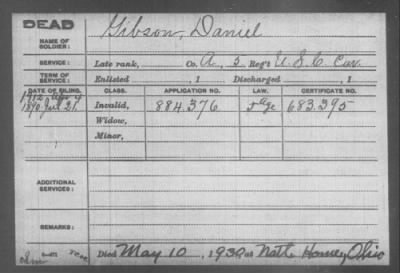 DEAD
NAME OF SOLDIER: Gibson, Daniel
SERVICE: Late rank, Co. A, 5 Reg't U.S.C. Cav.
TERM OF SERVICE: Enlisted , 1 Discharged , 1
DATE OF FILING. CLASS. APPLICATION NO. LAW. CERTIFICATE NO.
1912
1890 Jul 21. Invalid, 884.376 Age 683.395
Widow,
Minor,
ADDITIONAL SERVICES:
REMARKS:
Died May 10, 1930 at Natl. Home, Ohio